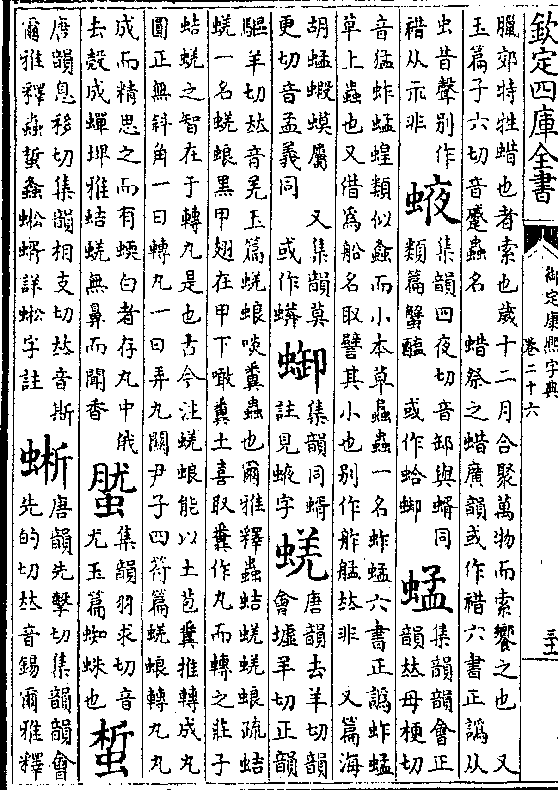 欽定四庫全書
御定康熙字典
卷二十六
臘郊特牲蜡也者索也歲十二月合聚萬物而索饗之也 又
玉篇子六切音蹙蟲名 蜡祭之蜡廣韻或作䄍六書正譌从
虫昔聲别作
䄍从示非
集韻四夜切音卸與蝑同
類篇蟹醢 或作蛤
蜢
集韻韻會正
韻𠀤母梗切
音猛蚱蜢蝗類似螽而小本草蟲螽一名蚱蜢六書正譌蚱蜢
草上蟲也又借爲船名取譬其小也别作舴艋𠀤非 又篇海
胡蜢蝦蟆屬 又集韻莫
更切音孟義同 或作蠎
集韻同蝑
註見 字
蜣
唐韻去羊切韻
會墟羊切正韻
驅羊切𠀤音羌玉篇蜣蜋啖糞蟲也爾雅釋蟲蛣蜣蜣蜋疏蛣
蜣一名蜣蜋黑甲翅在甲下噉糞土喜取糞作丸而轉之莊子
蛣蜣之智在于轉丸是也古今注蜣蜋能以土苞糞推轉成丸
圓正無斜角一曰轉丸一曰弄丸關尹子四符篇蜣蜋轉丸丸
成而精思之而有蝡白者存丸中俄
去殼成蟬埤雅蛣蜣無鼻而聞香
集韻羽求切音
尤玉篇蜘蛛也
蜤
唐韻息移切集韻相支切𠀤音斯
爾雅釋蟲蜤螽蜙蝑詳蜙字註
蜥
唐韻先擊切集韻韻會
先的切𠀤音錫爾雅釋